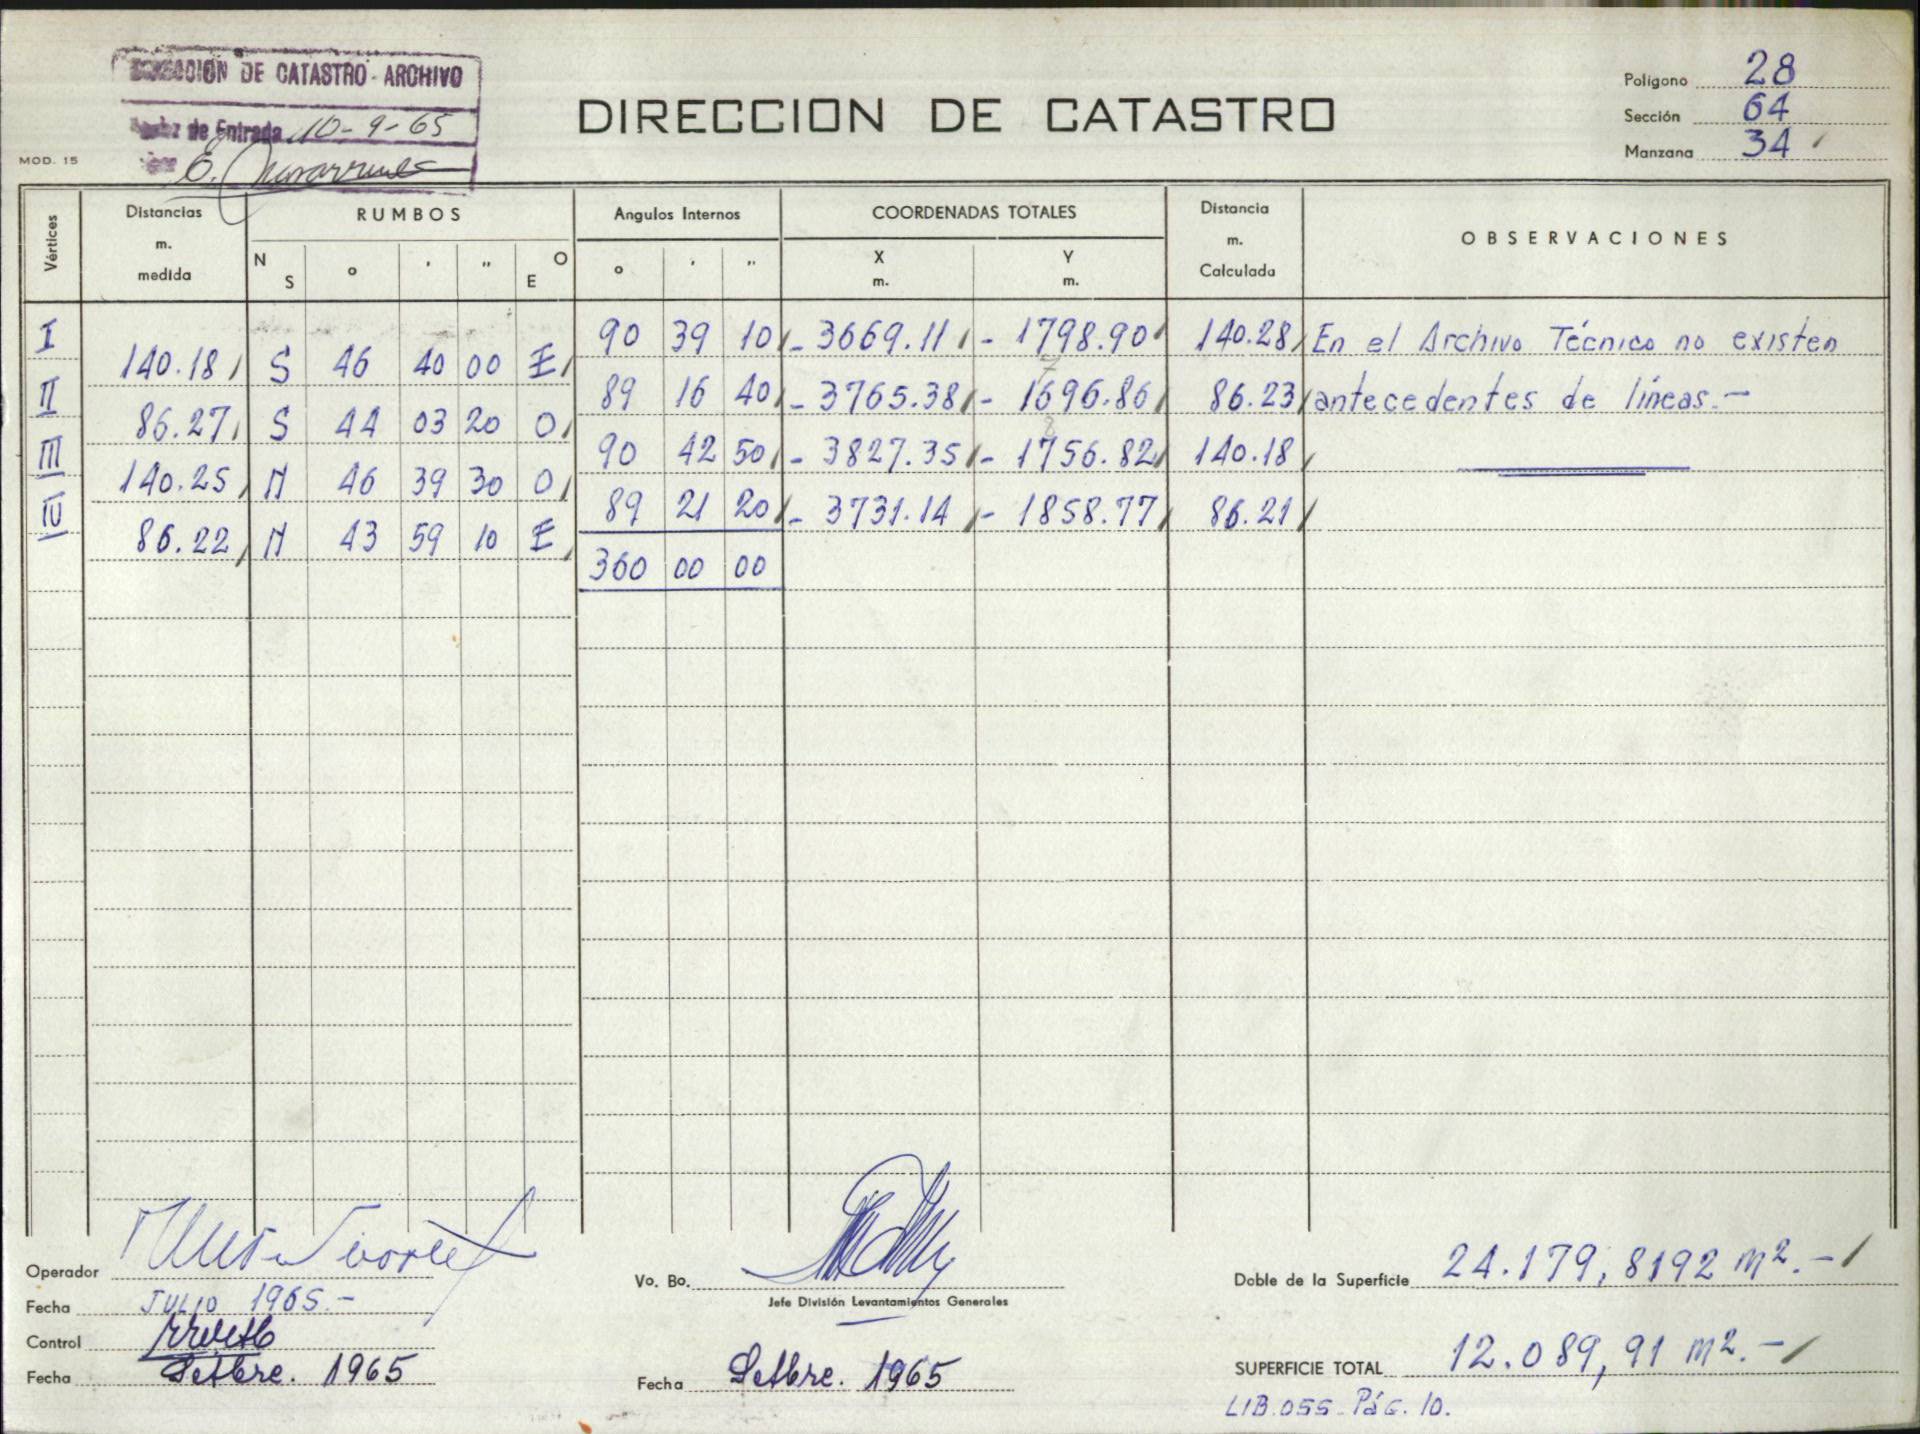 DIRECCION DE CATASTRO - ARCHIVO
de Entrada 10-9-65
MOD. 15
DIRECCION DE CATASTRO
Polígono 28
Sección 64
Manzana 34
Vértices Distancias m. medida RUMBOS Angulos Internos COORDENADAS TOTALES Distancia m. Calculada OBSERVACIONES
N S ° ' " O E ° ' " X m. Y m.
I 90 39 10 - 3669.11 - 1798.90 140.28 En el Archivo Técnico no existen
140.18 S 46 40 00 E
7
II 89 16 40 - 3765.38 - 1696.86 86.23 antecedentes de líneas.-
86.27 S 44 03 20 O
8
III 90 42 50 - 3827.35 - 1756.82 140.18
140.25 N 46 39 30 O
IV 89 21 20 - 3731.14 - 1858.77 86.21
86.22 N 43 59 10 E
360 00 00
Operador
Fecha JULIO 1965.-
Control
Fecha Setbre. 1965
Vo. Bo.
Jefe División Levantamientos Generales
Fecha Setbre. 1965
Doble de la Superficie 24.179,8192 m2.-
SUPERFICIE TOTAL 12.089,91 m2.-
LIB.055 Pág. 10.